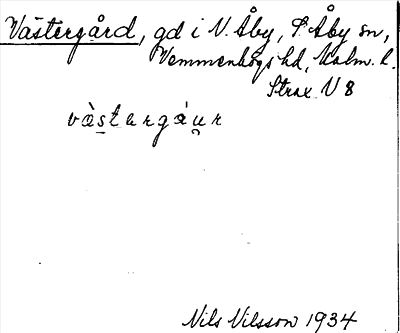 Västergård, gd i V. Åby, Ö. Åby sn,
Vemmenhögs hd, Malm. l.
Strax V 8
väste̤rgåu̯r
Nils Nilsson 1934